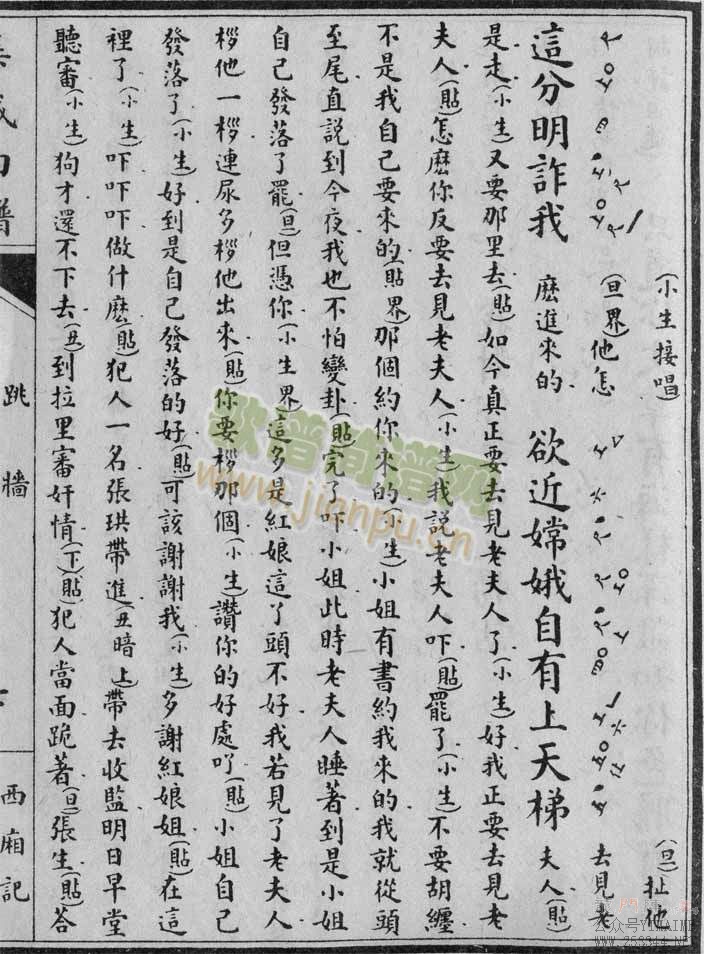 (小生接唱)
(旦)扯他
這分明詐我(旦界)他怎麽進來的欲近嫦娥自有上天梯去見老夫人(貼)
是走(小生)又要那里去(貼)如今真正要去見老夫人了(小生)好我正要去見老
夫人(貼)怎麽你反要去見老夫人(小生)我説老夫人吓(貼)罷了(小生)不要胡纏
不是我自己要來的(貼界)那個約你來的(小生)小姐有書約我來的我就從頭
至尾直説到今夜我也不怕變卦(貼)完了吓小姐此時老夫人睡著到是小姐
自己發落了罷(旦)但憑你(小生界)這多是紅娘這丫頭不好我若見了老夫人
桚他一桚連尿多桚他出來(貼)你要桚那個(小生)讚你的好處吖(貼)小姐自己
發落了(小生)好到是自己發落的好(貼)可該謝謝我(小生)多謝紅娘姐(貼)在這
裡了(小生)吓吓吓做什麽(貼)犯人一名張珙帶進(丑暗上)帶去收監明日早堂
聽審(小生)狗才還不下去(丑)到拉里審奸情(下)(貼)犯人當面跪著(旦)張生(貼)答
集成曲譜
跳牆
西廂記
歌谱简谱网
www.jianpu.cn